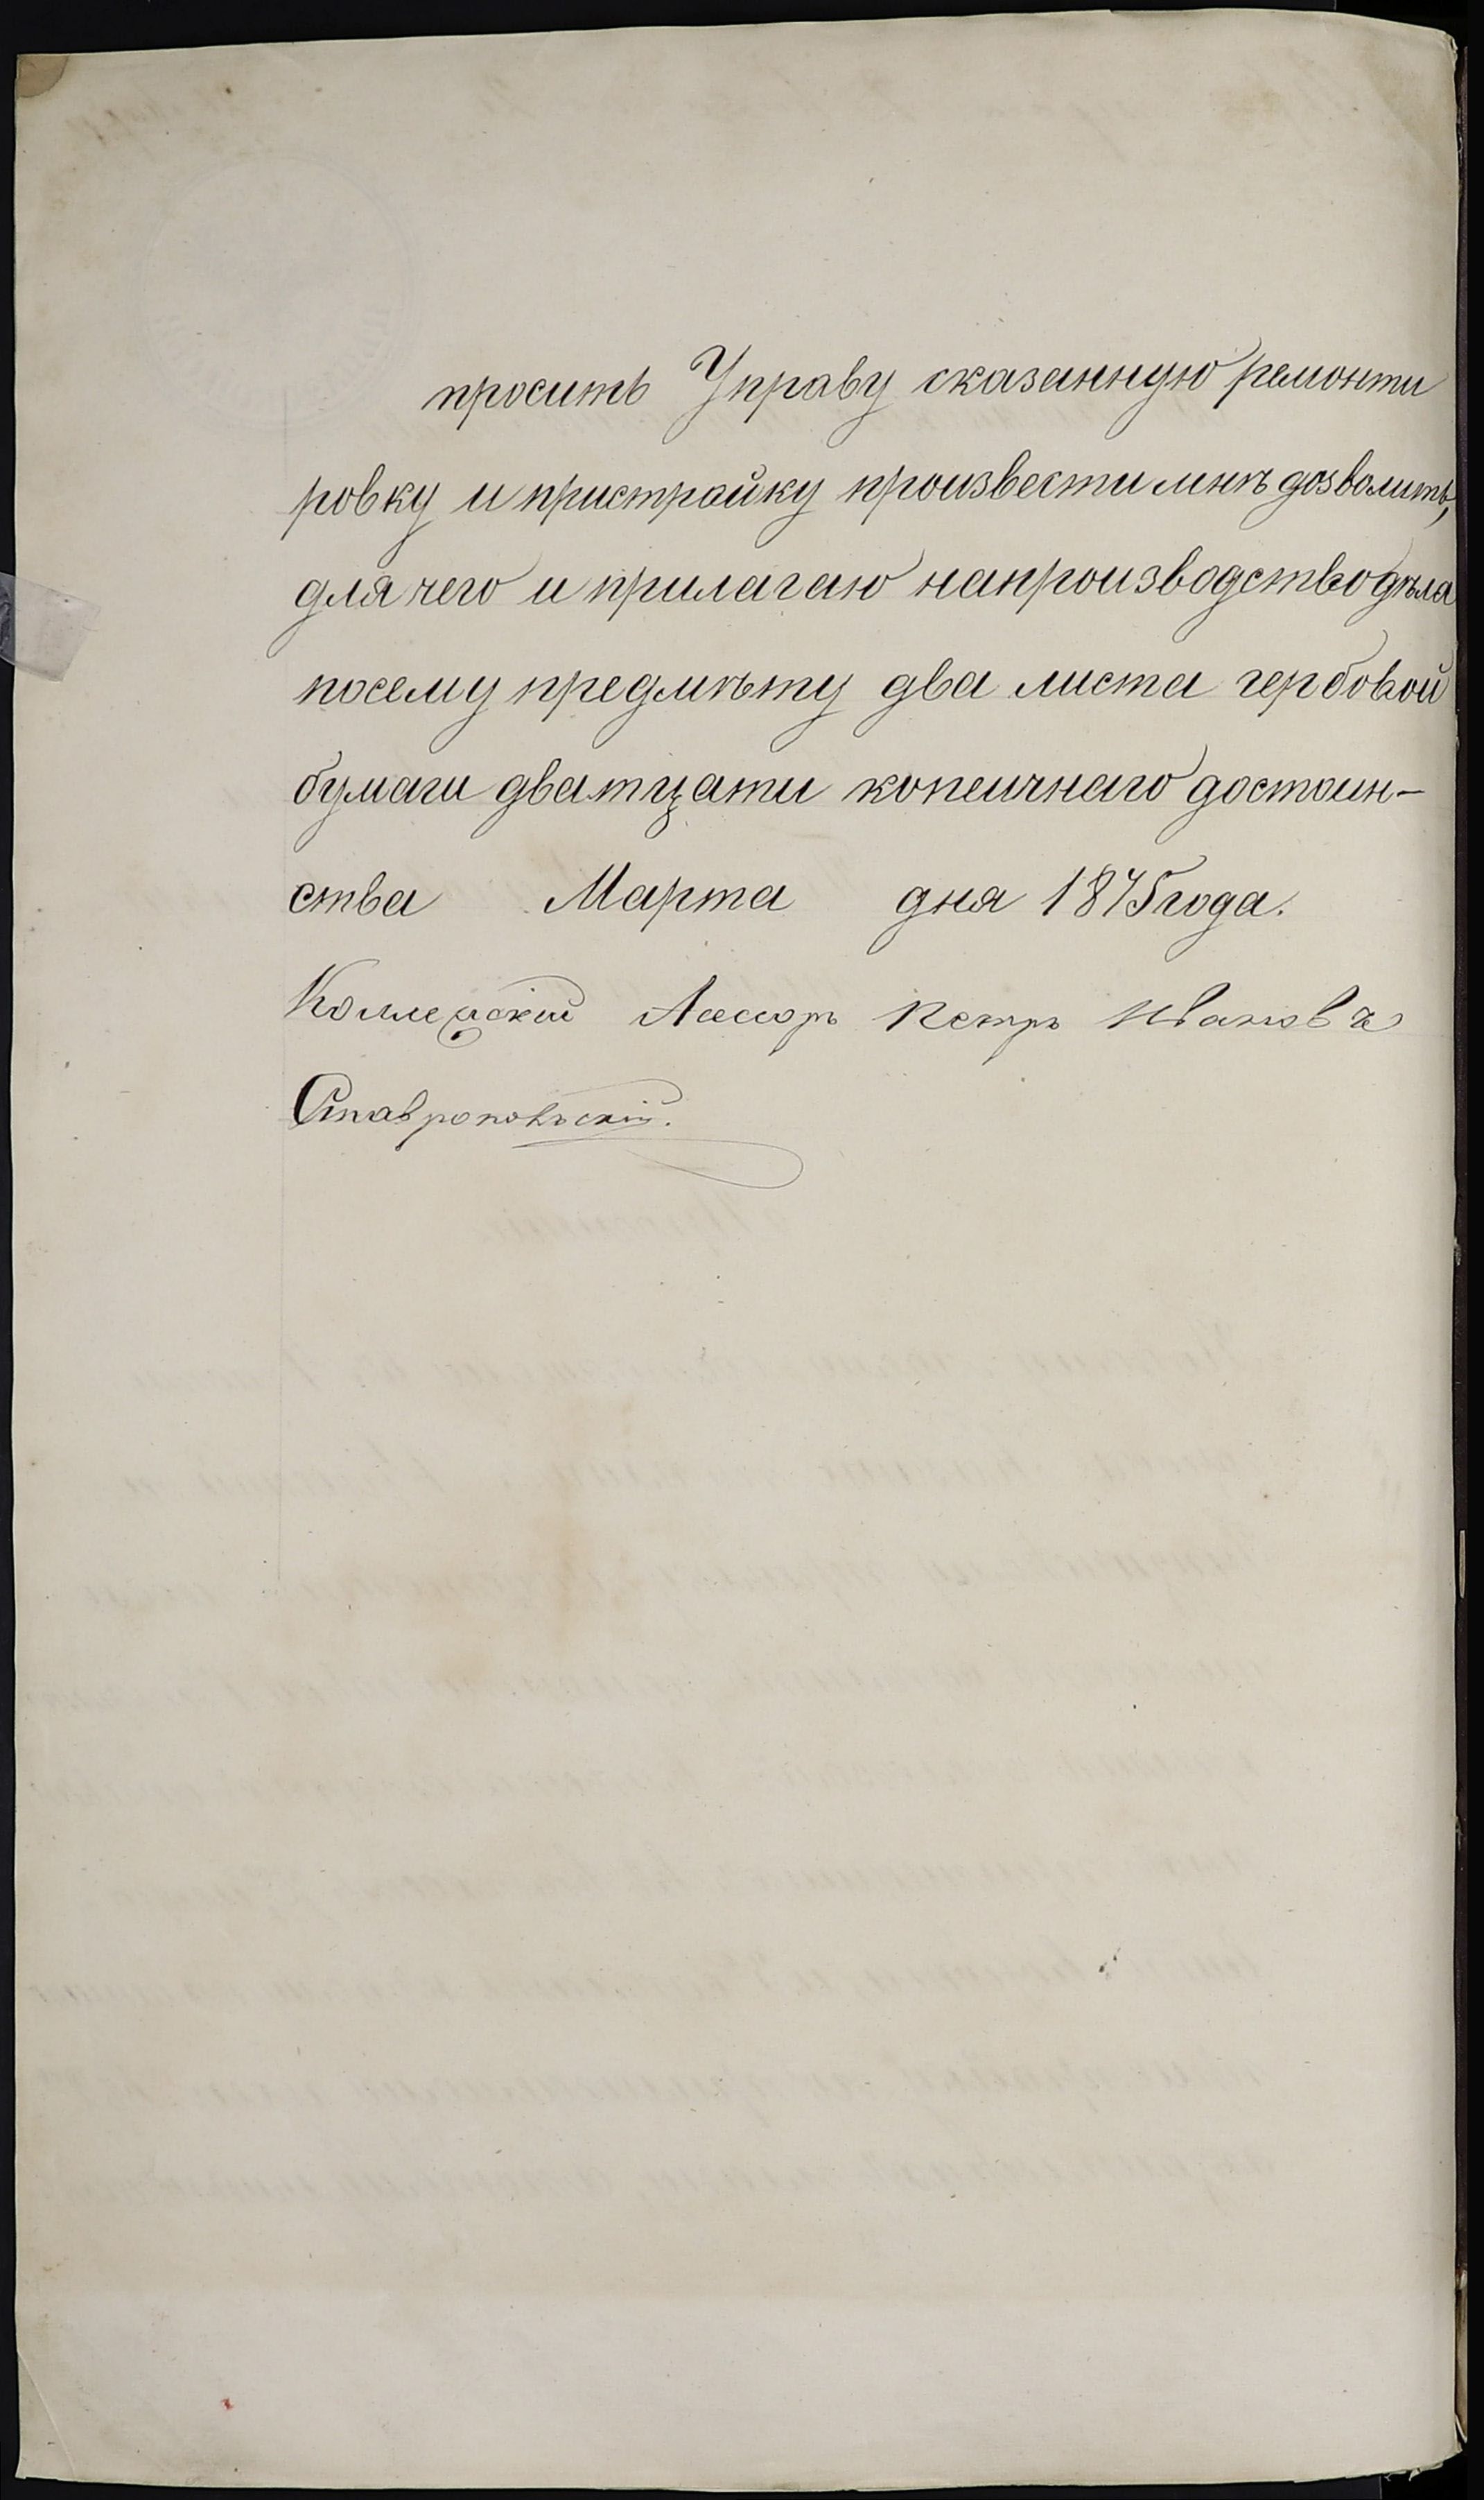 просить Управу сказанную ремонти
ровку и пристрайку произвести мнѣ дозволить,
для чего и прилагаю напроизводство дѣла
посему предмѣту два листа гербовой
бумаги дватцати копеичнаго достоин-
ства Марта дня 1875 года.
Коллежскій Ассоръ Петръ Ивановъ
Ставропольскій.